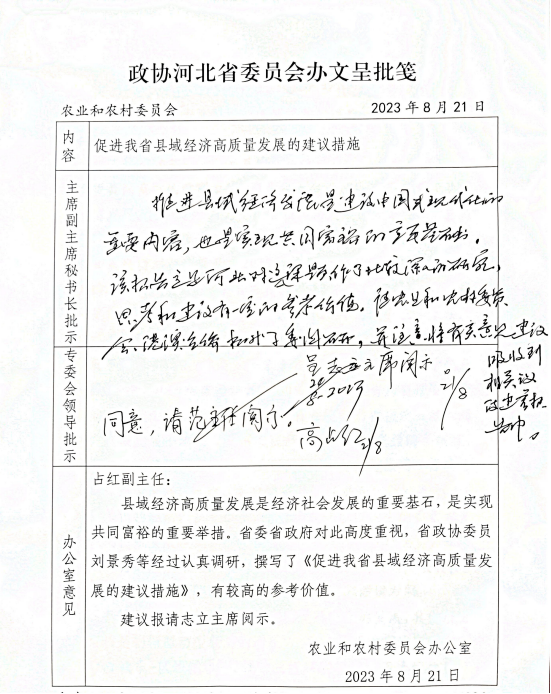 政协河北省委员会办文呈批笺
农业和农村委员会 2023年8月21日
内容
促进我省县域经济高质量发展的建议措施
主席副主席秘书长批示
推进县域经济发展是建设中国式现代化的
重要内容，也是实现共同富裕的重要基础。
该报告立足河北对这课题作了比较深入的研究，
思考和建议有一定的参考价值。请农业和农村委员
会
并注意将有关意见建议
吸收到
相关议
21/8
专委会领导批示
呈志立主席阅示
同意，请范主任阅示。
21/8
办公室意见
占红副主任：
县域经济高质量发展是经济社会发展的重要基石，是实现
共同富裕的重要举措。省委省政府对此高度重视，省政协委员
刘景秀等经过认真调研，撰写了《促进我省县域经济高质量发
展的建议措施》，有较高的参考价值。
建议报请志立主席阅示。
农业和农村委员会办公室
2023年8月21日